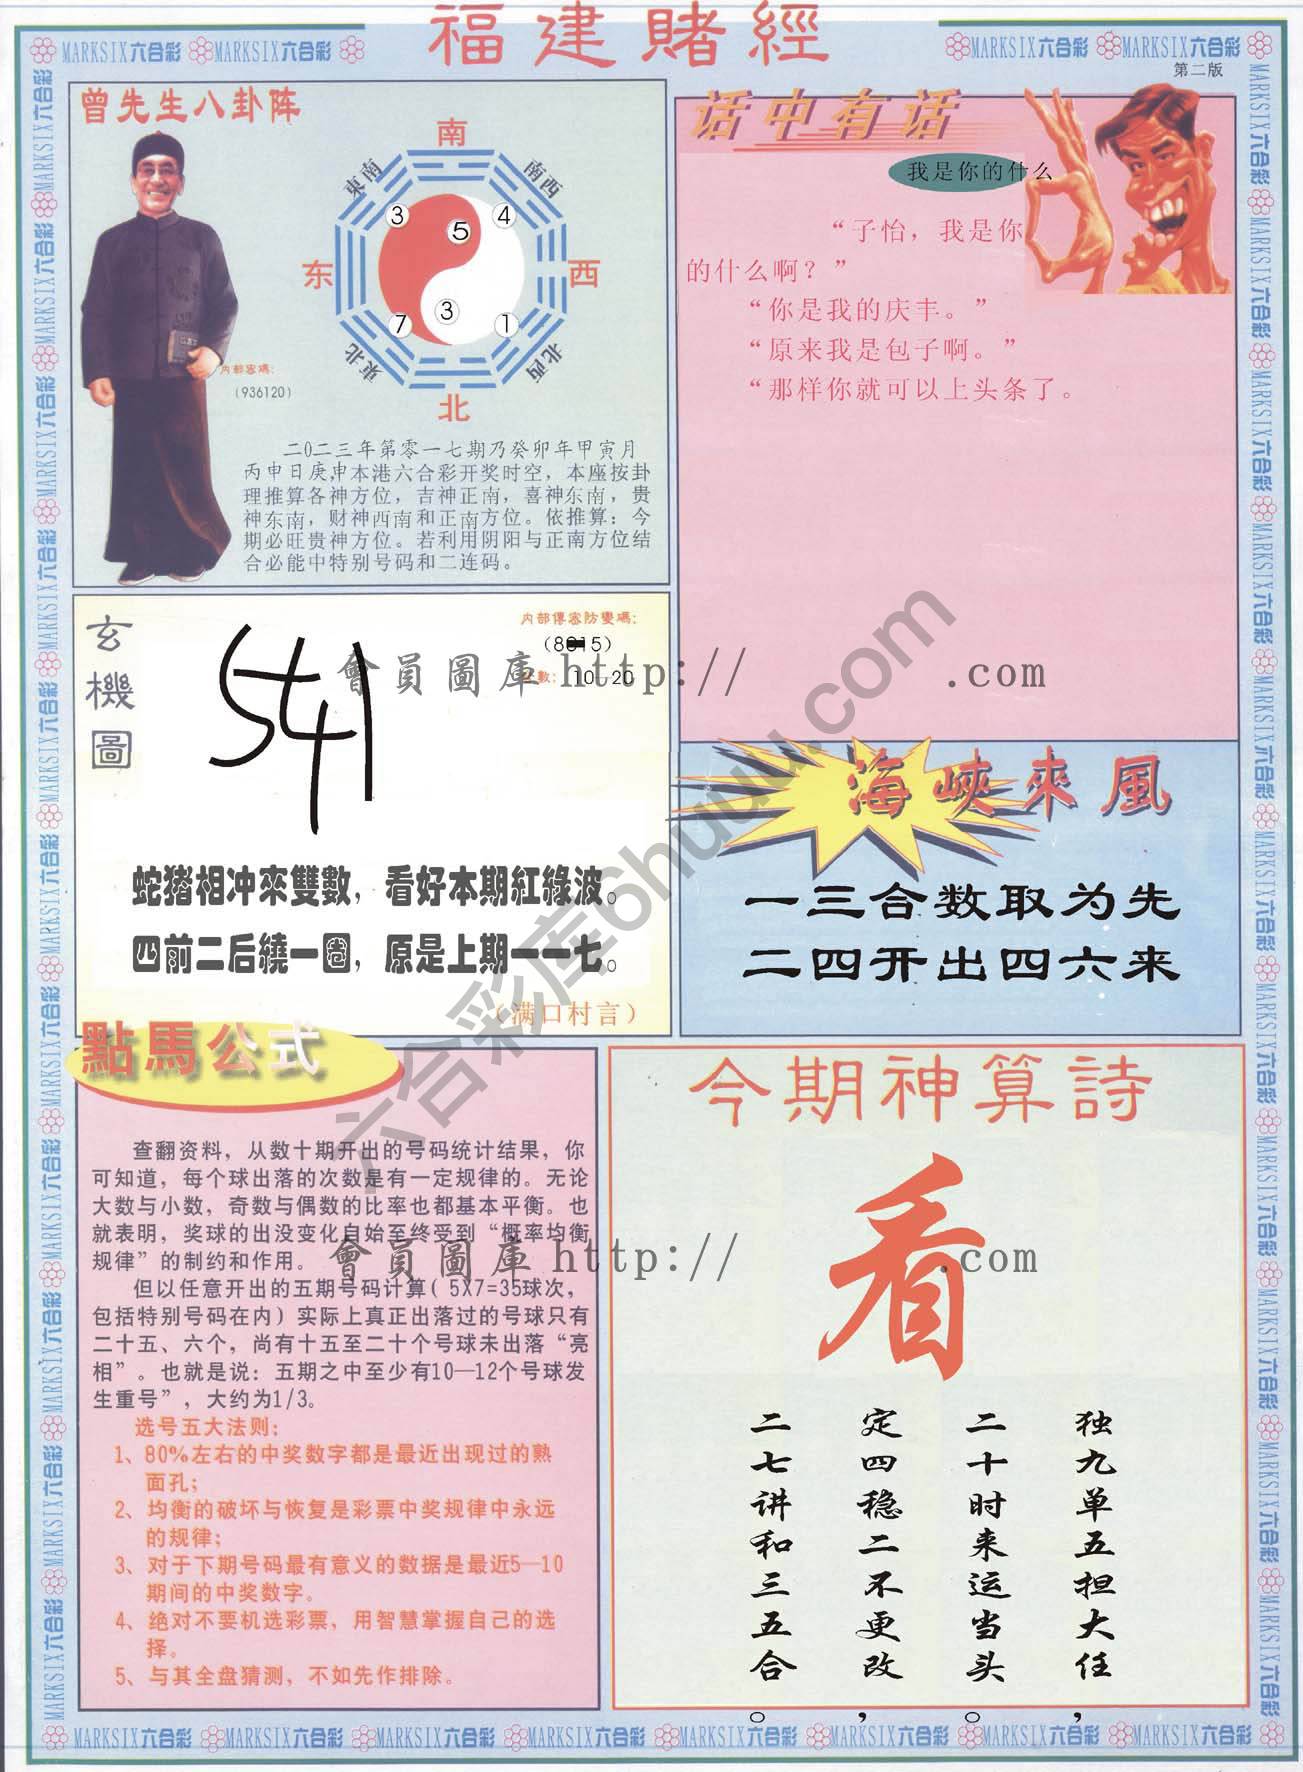 福建賭經
MARKSIX六合彩 MARKSIX六合彩
MARKSIX六合彩 MARKSIX六合彩
第二版
曾先生八卦阵
南
東南
南西
3
4
5
东
西
3
7
1
東北
北西
北
内部密碼:
(936120)
二〇二三年第零一七期乃癸卯年甲寅月
丙申日庚申本港六合彩开奖时空，本座按卦
理推算各神方位，吉神正南，喜神东南，贵
神东南，财神西南和正南方位。依推算：今
期必旺贵神方位。若利用阴阳与正南方位结
合必能中特别号码和二连码。
话中有话
我是你的什么
“子怡，我是你
的什么啊？”
“你是我的庆丰。”
“原来我是包子啊。”
“那样你就可以上头条了。
玄機圖
内部傳密防變碼:
數: 10-20
541
會員圖庫 http:// .com
蛇猪相冲來雙數，看好本期紅綠波。
四前二后繞一圈，原是上期一一七。
（满口村言）
海峽來風
一三合数取为先
二四开出四六来
點馬公式
查翻资料，从数十期开出的号码统计结果，你
可知道，每个球出落的次数是有一定规律的。无论
大数与小数，奇数与偶数的比率也都基本平衡。也
就表明，奖球的出没变化自始至终受到“概率均衡
规律”的制约和作用。
但以任意开出的五期号码计算( 5X7=35球次，
包括特别号码在内）实际上真正出落过的号球只有
二十五、六个，尚有十五至二十个号球未出落“亮
相”。也就是说：五期之中至少有10—12个号球发
生重号”，大约为1/3。
选号五大法则：
1、80%左右的中奖数字都是最近出现过的熟
面孔；
2、均衡的破坏与恢复是彩票中奖规律中永远
的规律；
3、对于下期号码最有意义的数据是最近5—10
期间的中奖数字。
4、绝对不要机选彩票，用智慧掌握自己的选
择。
5、与其全盘猜测，不如先作排除。
今期神算詩
看
独九单五担大任，
二十时来运当头。
定四稳二不更改，
二七讲和三五合。
會員圖庫 http:// .com
六合彩库6huuu.com
MARKSIX六合彩 MARKSIX六合彩 MARKSIX六合彩 MARKSIX六合彩 MARKSIX六合彩 MARKSIX六合彩 MARKSIX六合彩 MARKSIX六合彩